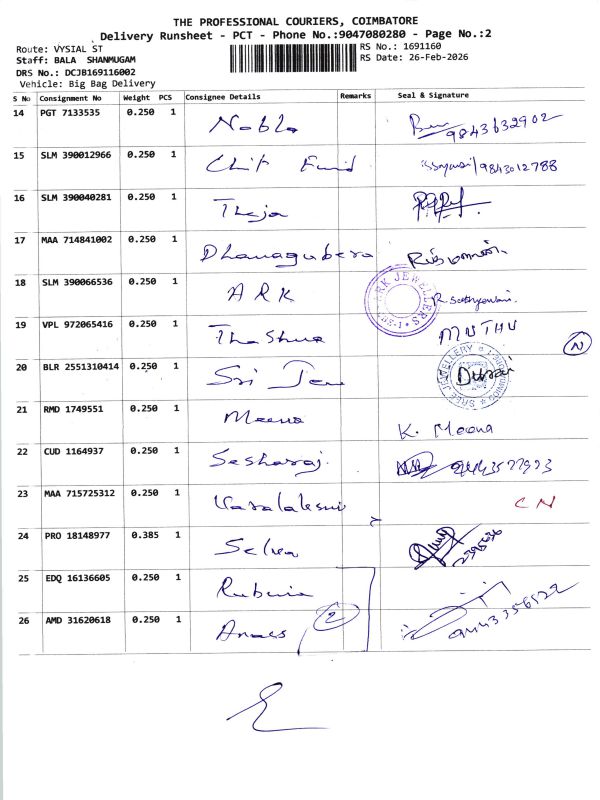 THE PROFESSIONAL COURIERS, COIMBATORE
Delivery Runsheet - PCT - Phone No.:9047080280 - Page No.:2
Route: VYSIAL ST
Staff: BALA SHANMUGAM
DRS No.: DCJB169116002
Vehicle: Big Bag Delivery
RS No.: 1691160
RS Date: 26-Feb-2026
S No Consignment No Weight PCS Consignee Details Remarks Seal & Signature
14 PGT 7133535 0.250 1 Nobla 9843632902
15 SLM 390012966 0.250 1 Chit Fund 9843012788
16 SLM 390040281 0.250 1 Theja
17 MAA 714841002 0.250 1 Dhanagubera
18 SLM 390066536 0.250 1 ARK ARK JEWELLERS R. Sathyavani.
19 VPL 972065416 0.250 1 MUTHU N
20 BLR 2551310414 0.250 1 Sri SREE JEWELLERY Durai
21 RMD 1749551 0.250 1 Meena K. Meena
22 CUD 1164937 0.250 1 Sesharaj.
23 MAA 715725312 0.250 1 CN
24 PRO 18148977 0.385 1 Selva
25 EDQ 16136605 0.250 1
26 AMD 31620618 0.250 1 2 9443356522